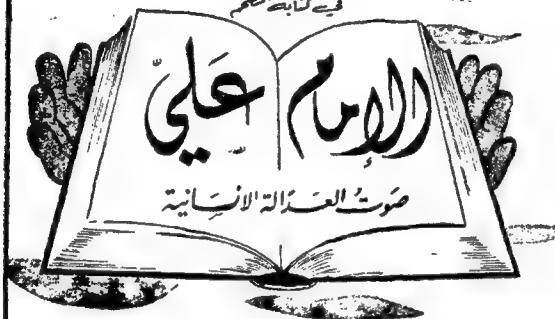 في كتابه
الإمام عليّ
صوتُ العدالة الانسانية